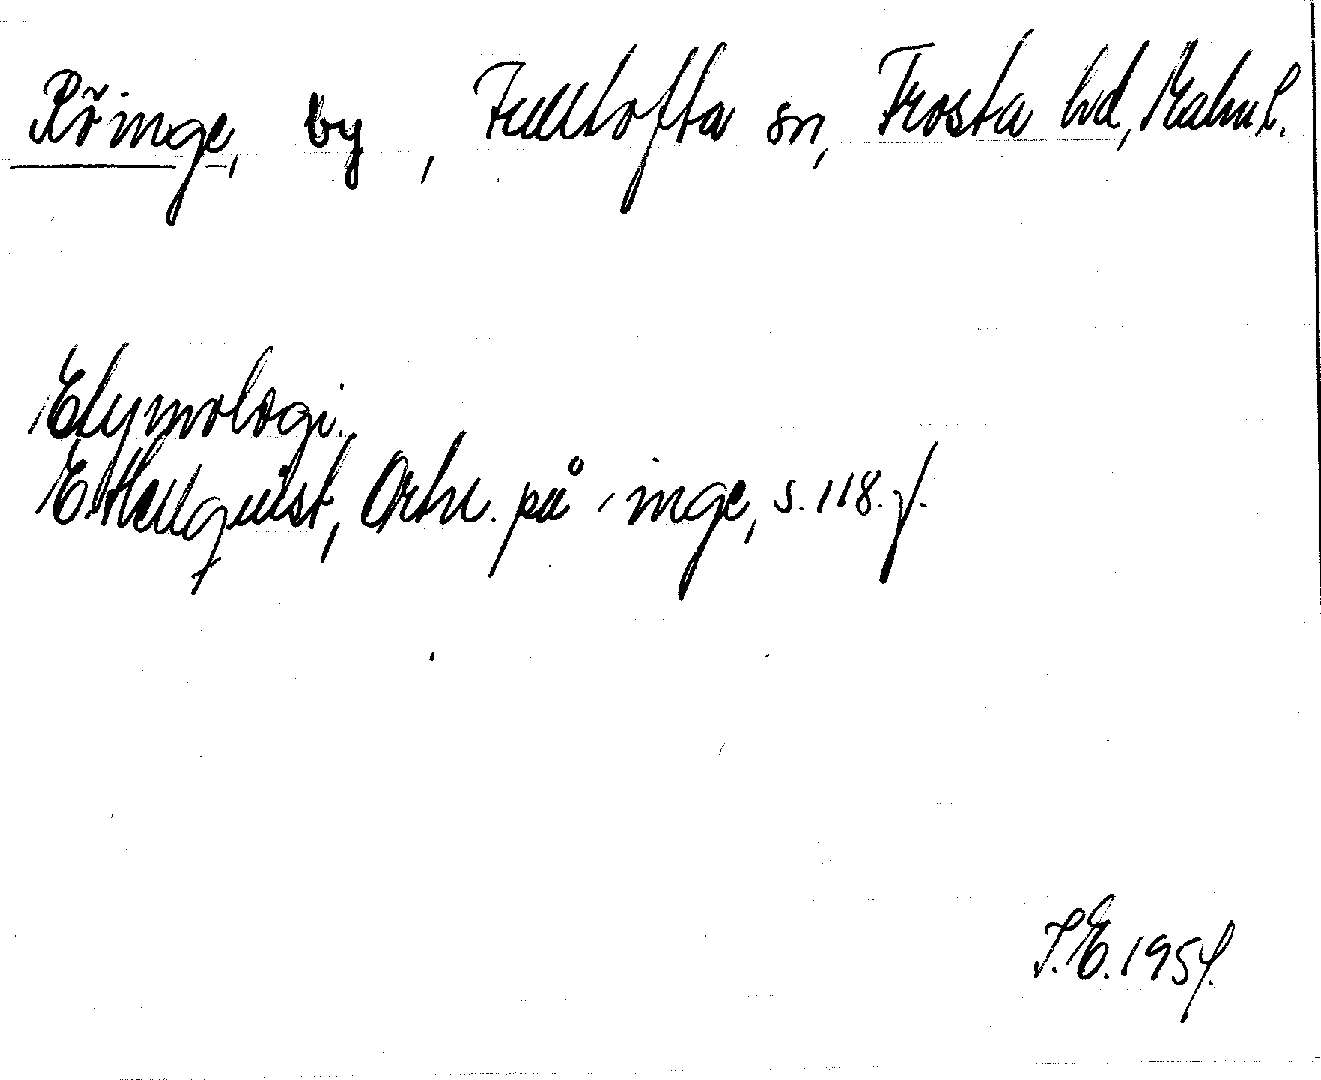 Röinge, by, Fulltofta sn, Frosta hd, Malm. l.
Etymologi.
E. Hellquist, Ortn. på -inge, s. 118 f.
S.E. 1954.